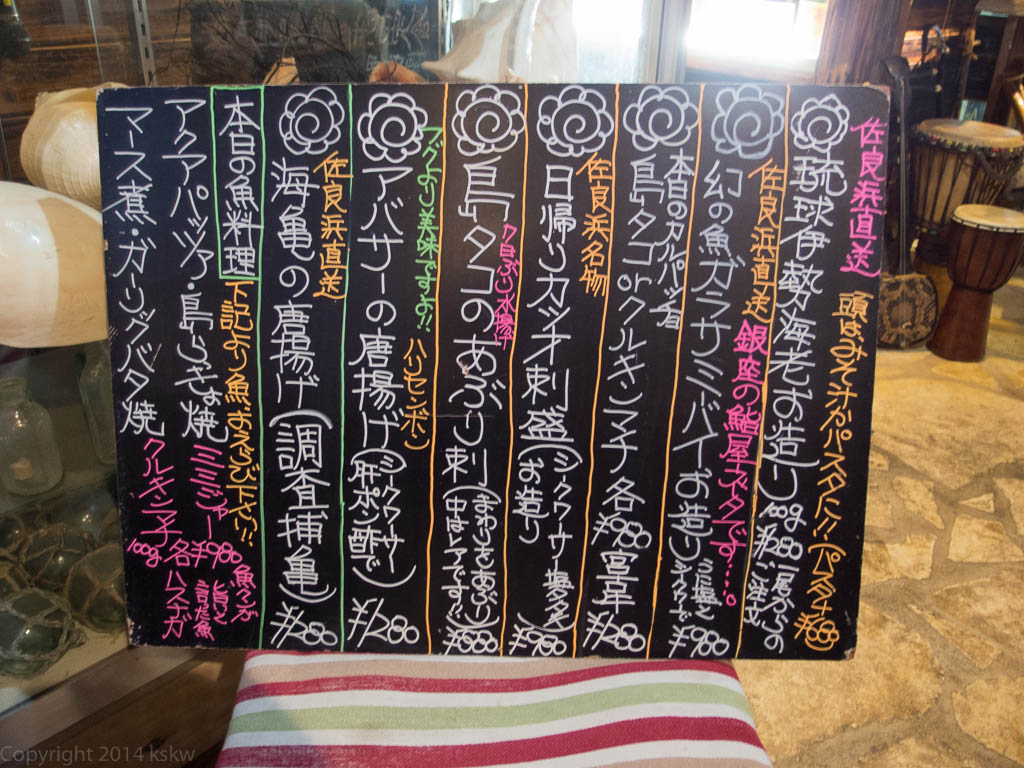 佐良浜直送
琉球伊勢海老お造り 100g ¥1,280 一尾からのご注文
頭はみそ汁かパスタに!!(パスタ+¥680)
佐良浜直送 銀座の鮨屋ネタです…。
幻の魚ガラサミーバイお造り ¥980
本日のカルパッチョ
島タコorクルキンマチ 各¥980 宮古牛 ¥1,280
佐良浜名物
日帰りカツオ刺盛(お造り) ¥980
今日ぶり水揚げ
島タコのあぶり刺(まわりをあぶり中はレアです!!) ¥880
フグより美味ですよ!! ハリセンボン
アバサーの唐揚げ(シークワーサー肝ポン酢で) ¥1,280
佐良浜直送
海亀の唐揚げ(調査捕亀) ¥1,280
本日の魚料理 下記より魚おえらび下さい!!
アクアパッツァ・島らっきょ焼
マース煮・ガーリックバタ焼
ミミジャー
クルキン子
100g 各¥980
ハスナガ
Copyright 2014 kskw